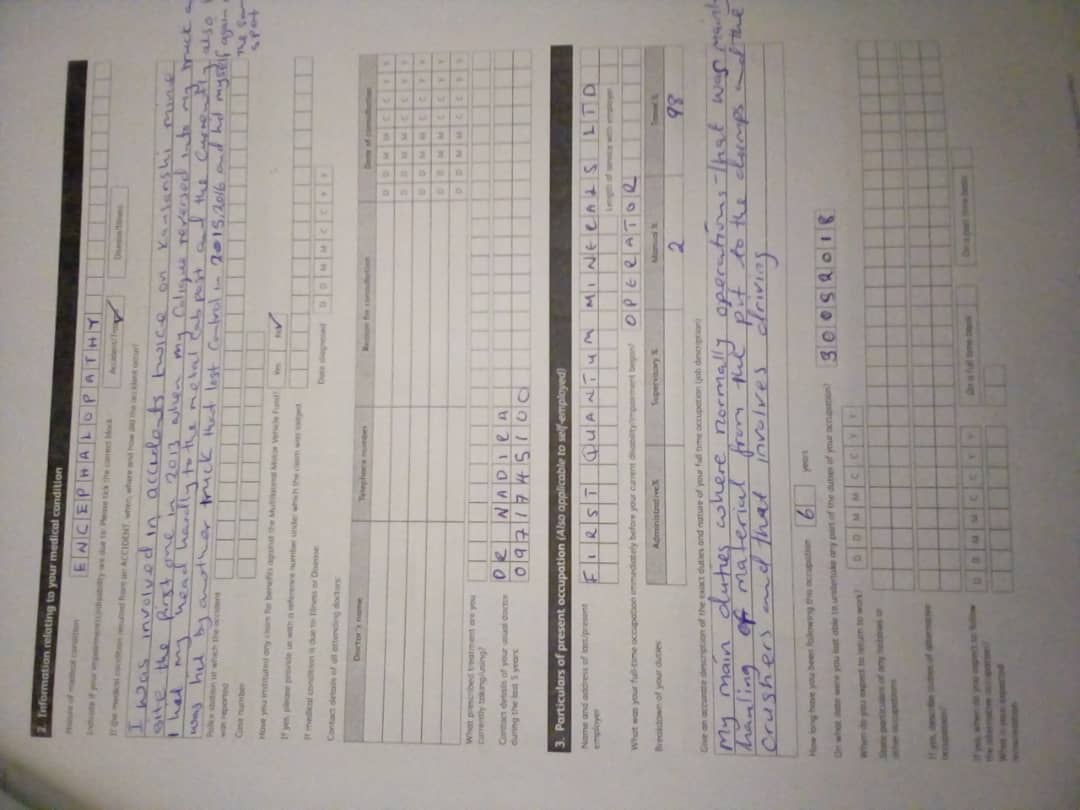 2. Information relating to your medical condition
Nature of medical condition ENCEPHALOPATHY
Indicate if your impairment(s)/disability are due to. Please tick the correct block Accident/Trauma ✓ Disease/Illness
If the medical condition resulted from an ACCIDENT, when, where and how did the accident occur?
I was involved in accidents twice on Kansanshi mine
site the first one in 2013 when my Colligue reversed into my truck
I had my head hardly to the metal cab post and the Currently also
was hid by another truck that lost Control in 2015,2016 and hid myself again
the same
spot
Police station at which the accident
was reported
Case number
Have you instituted any claim for benefits against the Multilateral Motor Vehicle Fund? Yes No ✓
If yes, please provide us with a reference number under which the claim was lodged
If medical condition is due to Illness or Disease: Date diagnosed D D M M C C Y Y
Contact details of all attending doctors:
Doctor's name Telephone number Reason for consultation Date of consultation
D D M M C C Y Y
D D M M C C Y Y
D D M M C C Y Y
D D M M C C Y Y
D D M M C C Y Y
What prescribed treatment are you
currently taking/using?
Contact details of your usual doctor DR NADIRA
during the last 5 years: 0971745100
3. Particulars of present occupation (Also applicable to self-employed)
Name and address of last/present FIRST QUANTUM MINERALS LTD
employer
Length of service with employer
What was your full-time occupation immediately before your current disability/impairment began? OPERATOR
Breakdown of your duties: Administrative% Supervisory % Manual % Travel %
2 98
Give an accurate description of the exact duties and nature of your full time occupation (job description)
My main duties where normally operations that was mainly
hauling of material from the pit to the dumps and the
crushers and that involves driving
How long have you been following this occupation 6 years
On what date were you last able to undertake any part of the duties of your occupation? 30092018
When do you expect to return to work? D D M M C C Y Y
State particulars of any hobbies or
other occupations
If yes, describe duties of alternative
occupation
If yes, when do you expect to follow D D M M C C Y Y On a full time basis On a part time basis
the alternative occupation?
What is expected